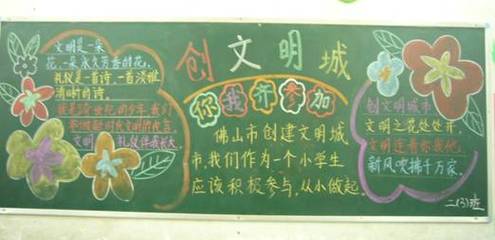 文明是一朵
花,一朵永久芳香的花,
礼仪是一首诗,一首淡雅
清晰的诗,
文明、礼仪伴我长大。
创文明城
你我齐参加
佛山市创建文明城
市,我们作为一个小学生
应该积极参与,从小做起。
创文明城市
文明之花处处开,
文明连着你我他,
新风吹拂千万家。
二(3)班